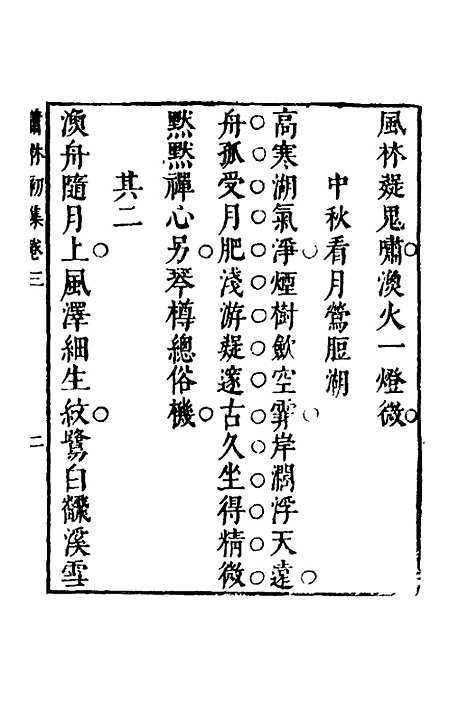 風林疑鬼嘯漁火一燈微
中秋看月鶯脰湖
高寒湖氣淨煙樹歛空霏岸濶浮天遠
舟孤受月肥淺游疑邃古久坐得精微
黙黙禪心另琴樽總俗機
其二
漁舟隨月上風澤細生紋鷺白翻溪雪
嘯林初集卷三 二